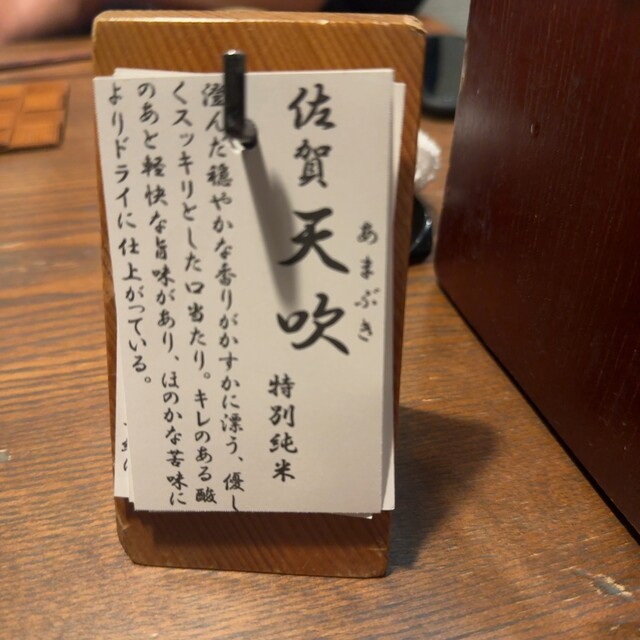 佐賀 天吹
あまぶき
特別純米
澄んだ穏やかな香りがかすかに漂う、優し
くスッキリとした口当たり。キレのある酸
のあと軽快な旨味があり、ほのかな苦味に
よりドライに仕上がっている。